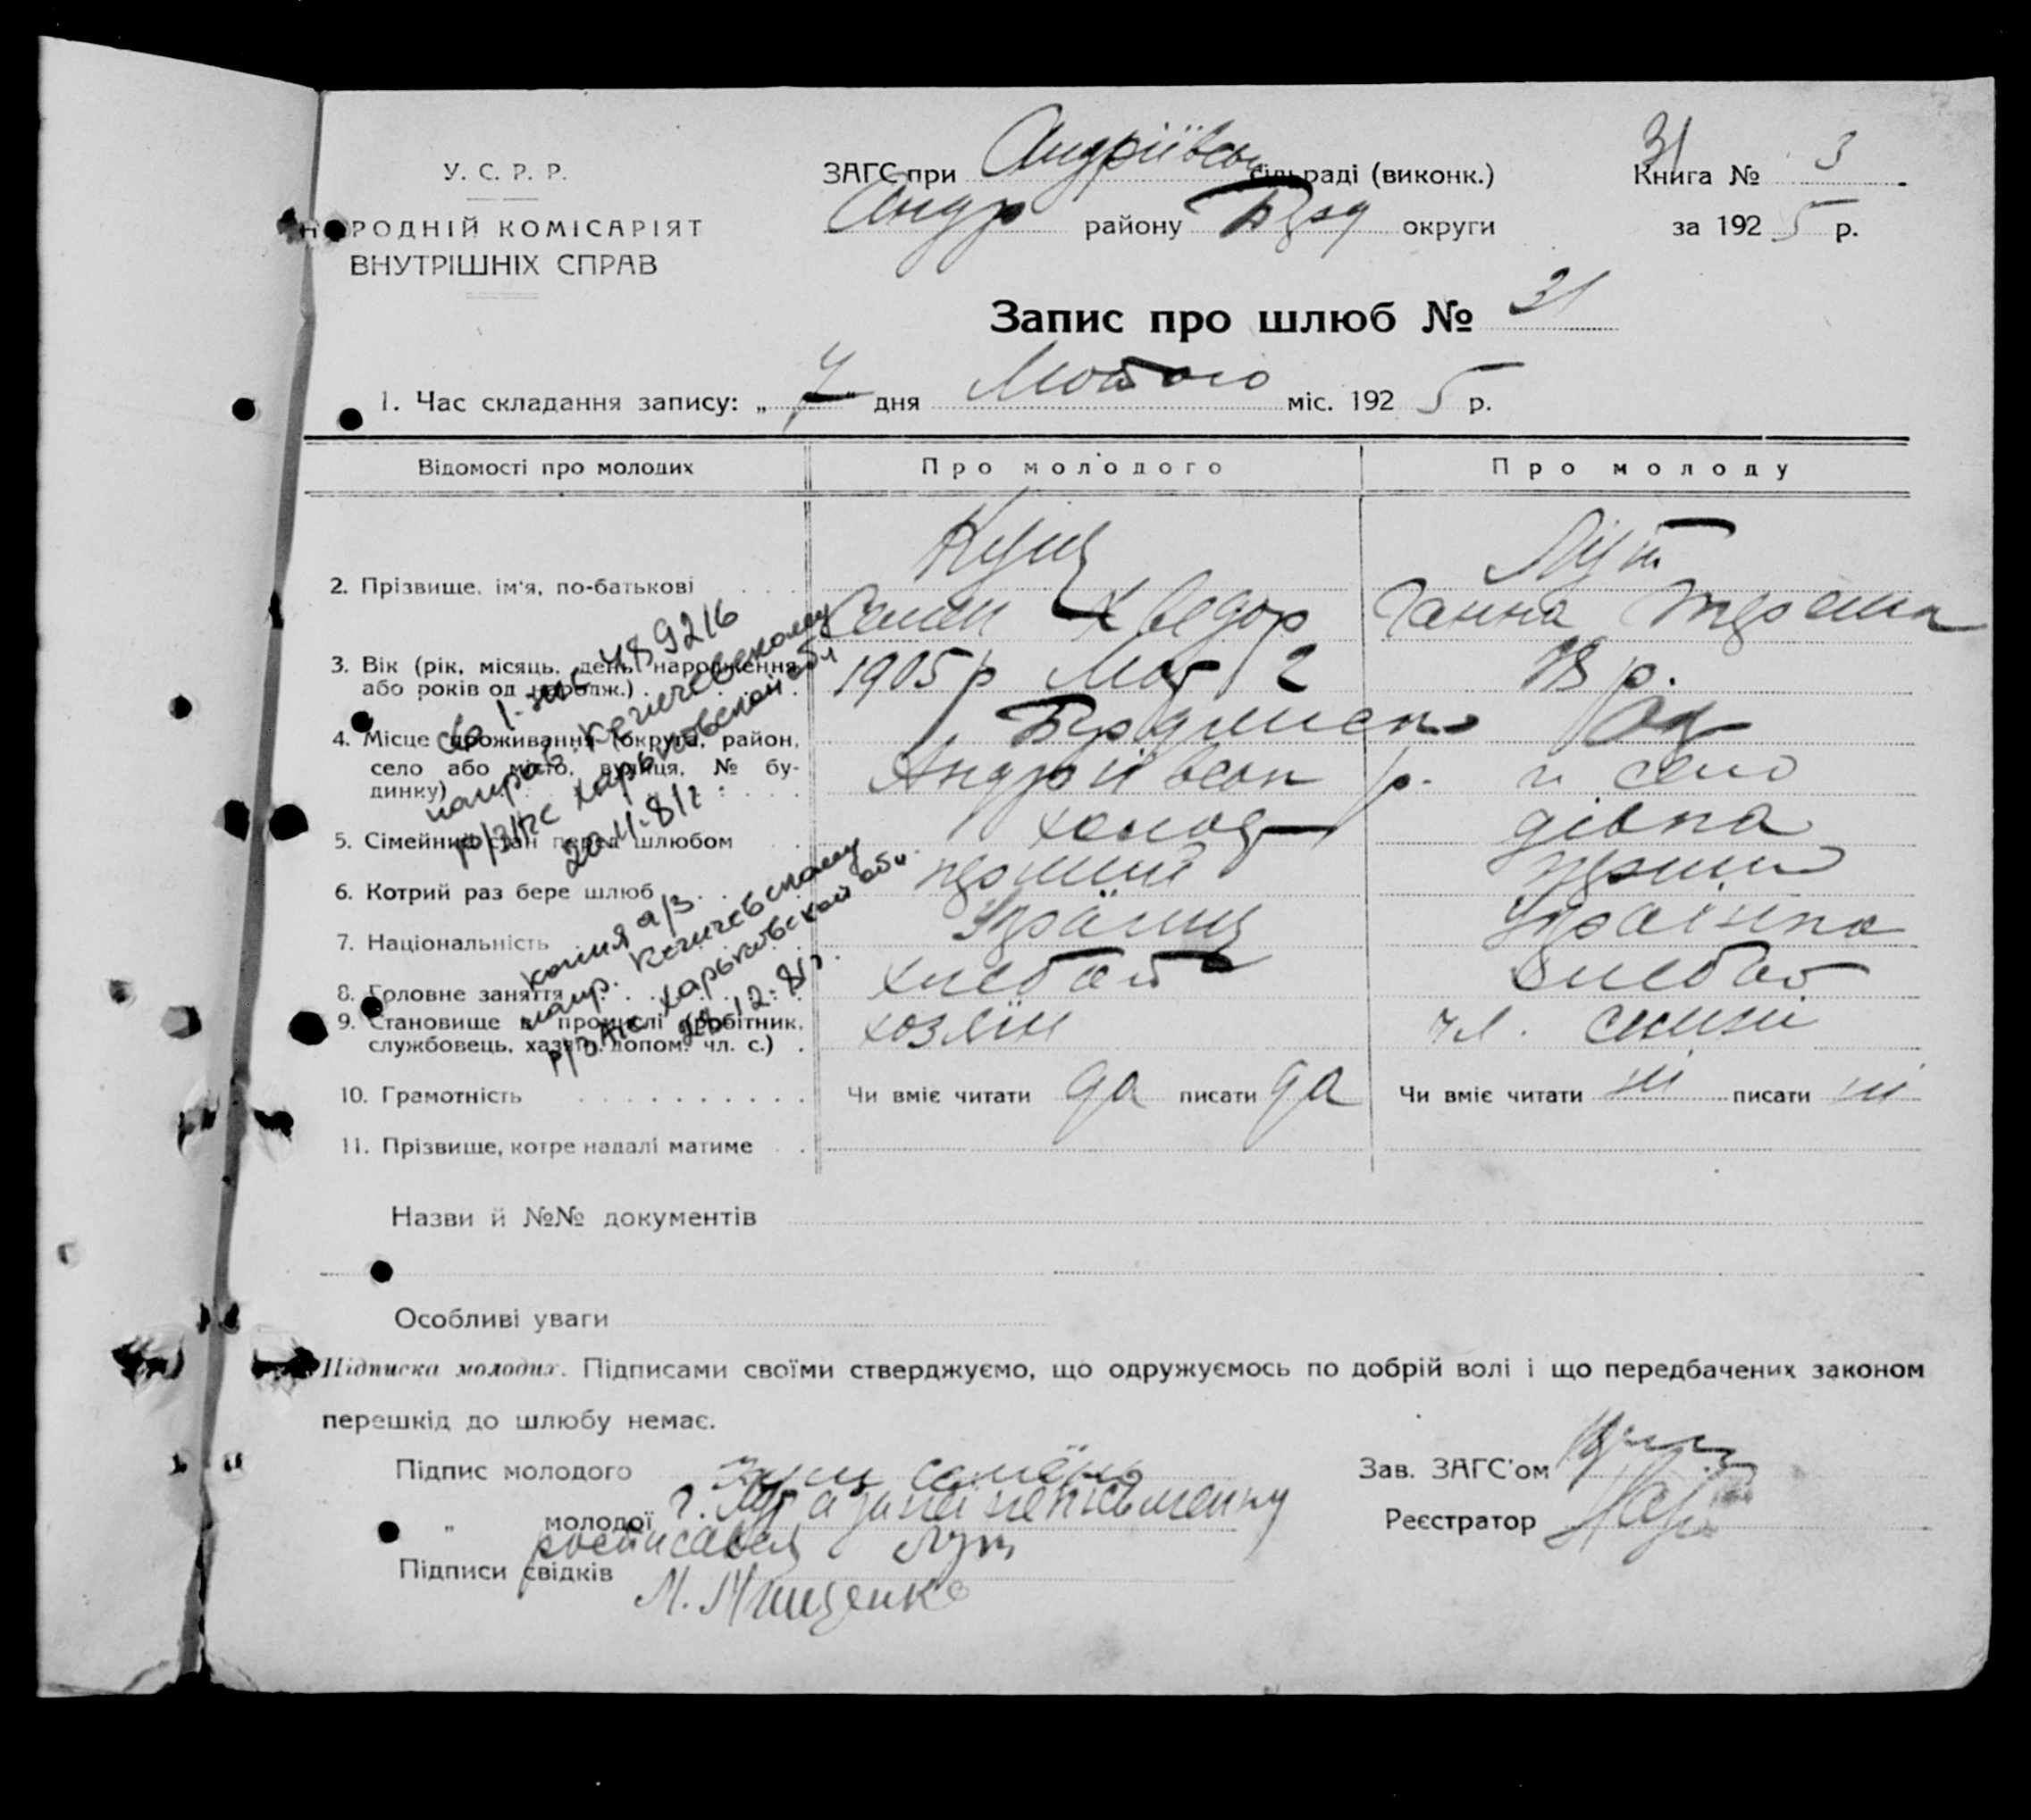 У. С. Р. Р.
НАРОДНІЙ КОМІСАРІЯТ
ВНУТРІШНІХ СПРАВ
ЗАГС при Андріївськ сільраді (виконк.)
Андр району Берд округи
31
Книга № 3
за 1925 р.
Запис про шлюб № 31
1. Час складання запису: „7" дня Лютого міс. 1925 р.
Відомості про молодих Про молодого Про молоду
2. Прізвище, ім'я, по-батькові Кущ Лут
Семен Хведор Ганна
3. Вік (рік, місяць, день народження або років од народж.) 1905 р Лют 2 18 р.
4. Місце проживання (округа, район, село або місто, вулиця, № будинку) Бердянськ
Андріївськ р. і село
5. Сімейний стан перед шлюбом холост дівка
6. Котрий раз бере шлюб перший перший
7. Національність Україниц Українка
8. Головне заняття хлебоб хлебоб
9. Становище в промислі (робітник, службовець, хазяїн, допом. чл. с.) хозяїн чл. сімї
10. Грамотність Чи вміє читати да писати да Чи вміє читати ні писати ні
11. Прізвище, котре надалі матиме
св 1-жс 489216
направ. Кегичевскому
р/ЗАГС Харьковской обл
20-11-81г.
копия а/з
напр. Кегичевскому
р/ЗАГС Харьковской обл.
12-81г.
Назви й №№ документів
Особливі уваги
Підписка молодих. Підписами своїми стверджуємо, що одружуємось по добрій волі і що передбачених законом
перешкід до шлюбу немає.
Підпис молодого
Зав. ЗАГС'ом
„ молодої Г. Лут а за неї неписьменну
Реєстратор
росписався Лут
Підписи свідків М. Мищенко